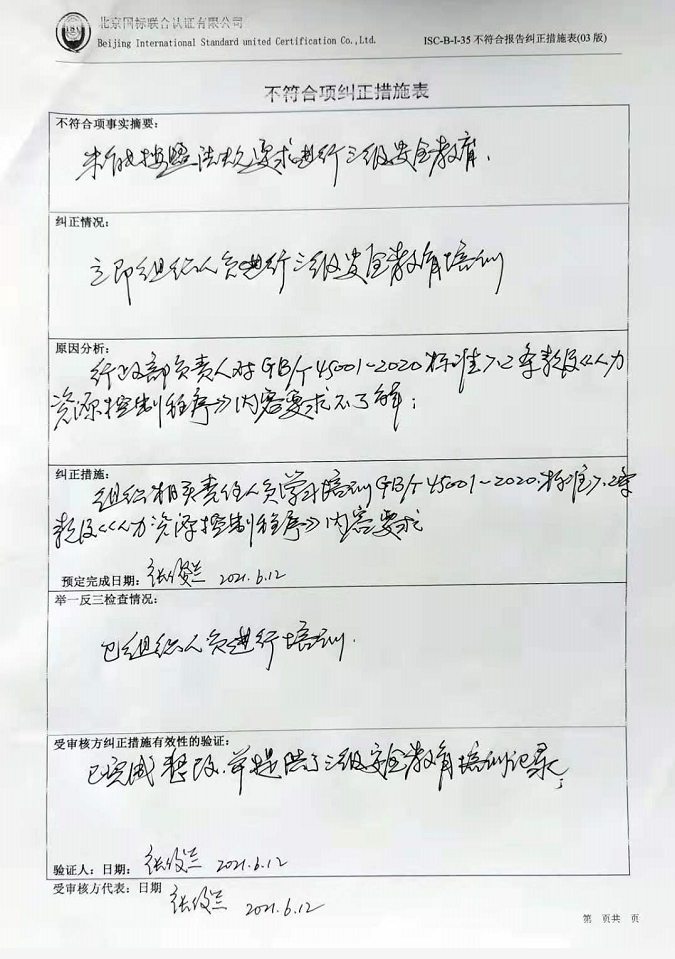 北京国标联合认证有限公司
Beijing International Standard united Certification Co.,Ltd.
ISC-B-I-35 不符合报告纠正措施表(03 版)
不符合项纠正措施表
不符合项事实摘要：
未能按照法规要求进行三级安全教育.
纠正情况：
立即组织人员进行三级安全教育培训
原因分析：
行政部负责人对GB/T 45001-2020标准7.2条款及《人力
资源控制程序》内容要求不了解；
纠正措施：
组织相关责任人员学习培训GB/T 45001-2020标准7.2条
款及《人力资源控制程序》内容要求
预定完成日期：
2021.6.12
举一反三检查情况：
已组织人员进行培训.
受审核方纠正措施有效性的验证：
已完成整改.并提供了三级安全教育培训记录；
验证人：日期：
2021.6.12
受审核方代表：日期
2021.6.12
第 页共 页